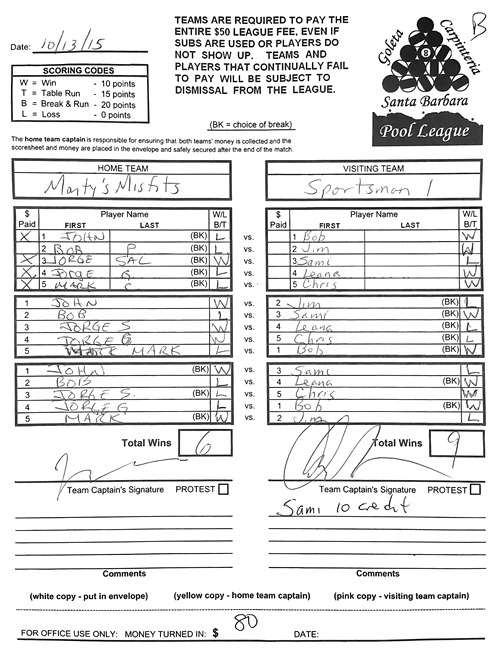 Date: 10/13/15
SCORING CODES
W = Win - 10 points
T = Table Run - 15 points
B = Break & Run - 20 points
L = Loss - 0 points
TEAMS ARE REQUIRED TO PAY THE
ENTIRE $50 LEAGUE FEE, EVEN IF
SUBS ARE USED OR PLAYERS DO
NOT SHOW UP. TEAMS AND
PLAYERS THAT CONTINUALLY FAIL
TO PAY WILL BE SUBJECT TO
DISMISSAL FROM THE LEAGUE.
(BK = choice of break)
B
Goleta
Carpinteria
8
Santa Barbara
Pool League
The home team captain is responsible for ensuring that both teams' money is collected and the
scoresheet and money are placed in the envelope and safely secured after the end of the match.
HOME TEAM VISITING TEAM
Marty's Misfits Sportsman 1
$ Paid Player Name FIRST LAST W/L B/T $ Paid Player Name FIRST LAST W/L B/T
X 1 JOHN (BK) L vs. 1 Bob W
2 BOB P (BK) L vs. 2 Jim W
X 3 JORGE SAL (BK) W vs. 3 Sami L
X 4 JORGE G. (BK) L vs. 4 Leana W
X 5 MARK C (BK) L vs. 5 Chris W
1 JOHN W vs. 2 Jim (BK) L
2 BOB L vs. 3 Sami (BK) W
3 JORGE S W vs. 4 Leana (BK) L
4 JORGE G W vs. 5 Chris (BK) L
5 MARK L vs. 1 Bob (BK) W
1 JOHN (BK) W vs. 3 Sami L
2 BOB L vs. 4 Leana (BK) W
3 JORGE S. (BK) L vs. 5 Chris W
4 JORGE G L vs. 1 Bob (BK) W
5 MARK (BK) W vs. 2 Jim L
Total Wins 6 Total Wins 9
Team Captain's Signature PROTEST Team Captain's Signature PROTEST
Sami 10 credit
Comments Comments
(white copy - put in envelope) (yellow copy - home team captain) (pink copy - visiting team captain)
FOR OFFICE USE ONLY: MONEY TURNED IN: $ 80 DATE: